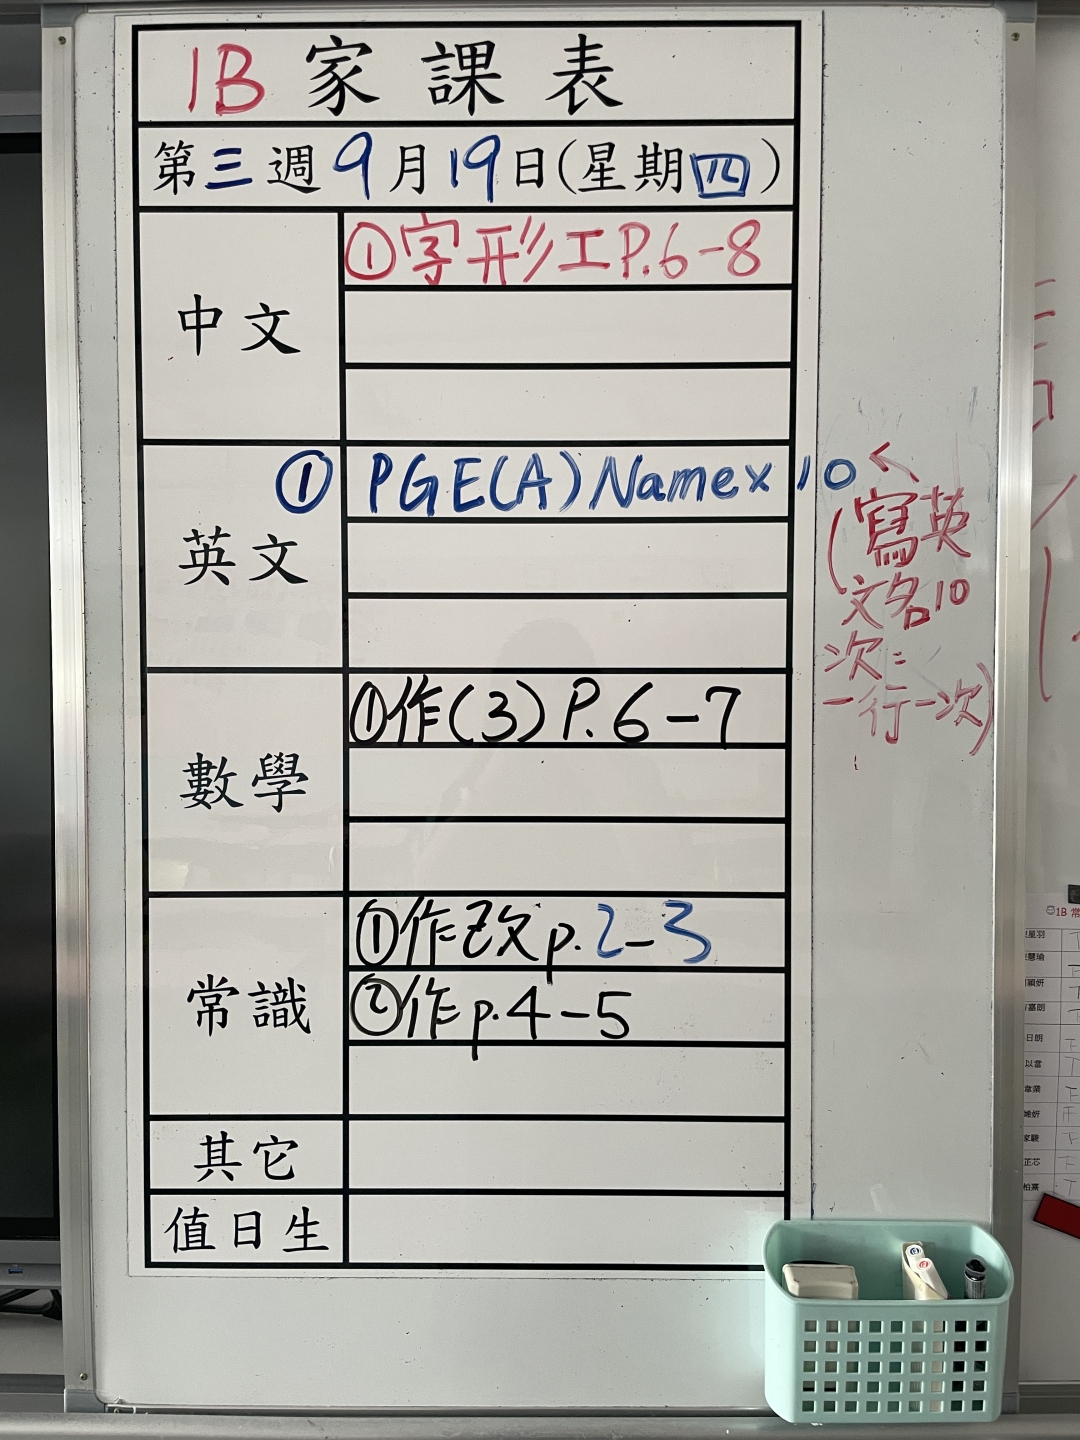 1B 家課表
第三週9月19日(星期四)
中文
①字形工P.6-8
英文
① PGE(A)Name×10
(寫英
文名10
次:
一行一次)
數學
①作(3)P.6-7
常識
①作改p.2-3
②作p.4-5
其它
值日生
1B 常
星羽
慧瑜
穎妍
嘉朗
日朗
以言
家駿
芷芯
柏熹